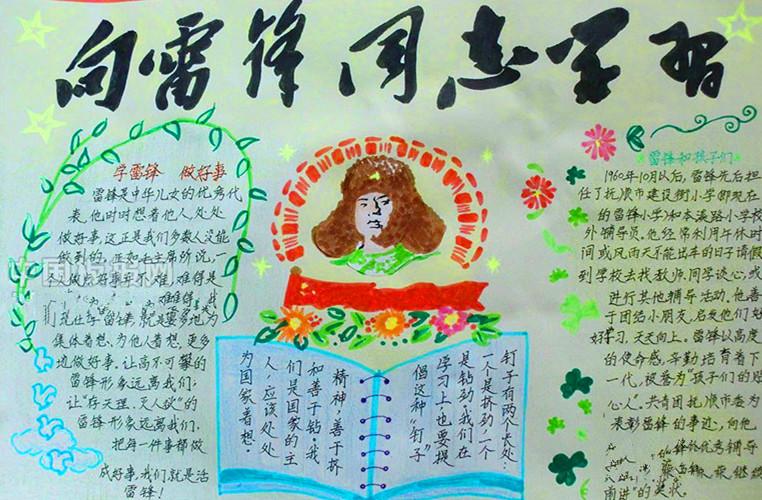 向雷锋同志学习
学雷锋 做好事
雷锋是中华儿女的优秀代
表,他时时想着他人,处处
做好事,这正是我们多数人没能
做到的。正如毛主席所说,一
人做点好事并不难,难得是
难难得,我
们现在学雷锋,就是要多地为
集体着想、为他人着想,更多
地做好事。让高不可攀的
雷锋形象远离我们;
让“存天理,灭人欲”的
雷锋形象远离我们。
把每一件事都做
成好事,我们就是活
雷锋!
钉子有两个长处:
一个是挤劲,一个
是钻劲,我们在
学习上,也要提
倡这种“钉子”
精神,善于挤
和善于钻。我
们是国家的主
人,应该处处
为国家着想。
雷锋和孩子们
1960年10月以后,雷锋先后担
任了抚顺市建设街小学(即现在
的雷锋小学)和本溪路小学校
外辅导员。他经常利用午休时
间或风雨天不能出车的日子请假
到学校去找教师、同学谈心,或
进行其他辅导活动。他善
于团结小朋友,启发他们好
好学习,天天向上。雷锋以高度
的使命感,辛勤培育着下
一代,被誉为“孩子们的贴
心人”。共青团抚顺市委为
表彰雷锋的事迹,向他
雷锋优秀辅导
继续
雨进”的